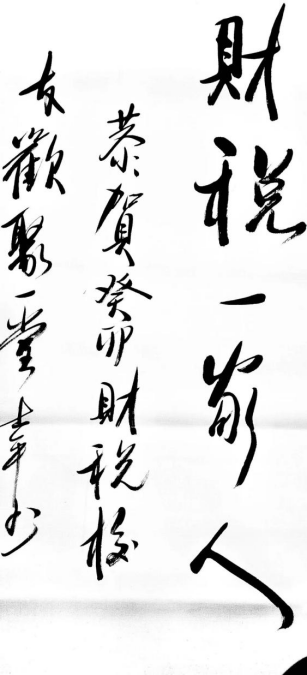 財税一家人
恭賀癸卯財税校
友歡聚一堂